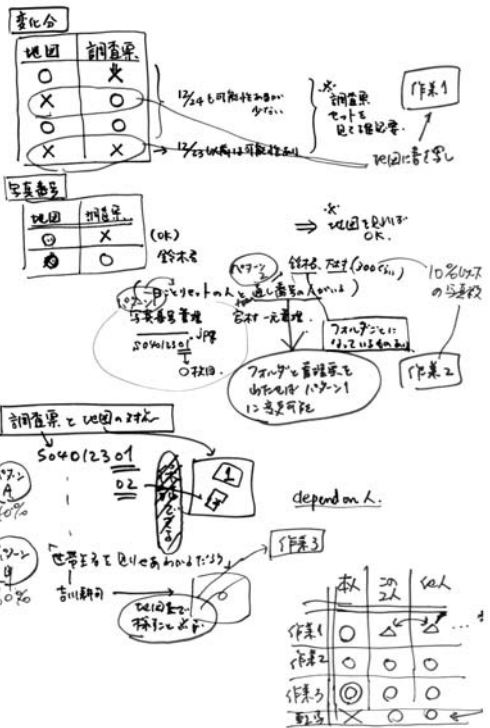 変化分
地図 調査票
○ ×
× ○
○ ○
× ×
12/24も可能性あるが
少ない
12/23以降は可能性あり
※
調査票
セットを
見て
作業1
地図に書き写し
写真番号
地図 調査票
○ ×
● ○
(OK)
鈴木君
※
⇒ 地図を見れば
OK.
パターン2
鈴木君、
10%
の写真数
パターン1
日ごとリセットの人と通し番号の人がいる
写真番号管理
S04012301.jpg
○枚目
一元管理
フォルダごとに
なっているものあり
フォルダと調査票を
あわせれば パターン1
に変更可能
作業2
調査票と地図の
S04012301
02
1
パターン
A
パターン
B
0%
depend on 人.
「世帯主名を見りゃあわかるだろう」
作業3
吉川
地図上で
探すこと必要
本人 この2人 他人
作業1 ○ △ △ ...
作業2 ○ ○ ○
作業3 ◎ ○ ○
× ○ ○